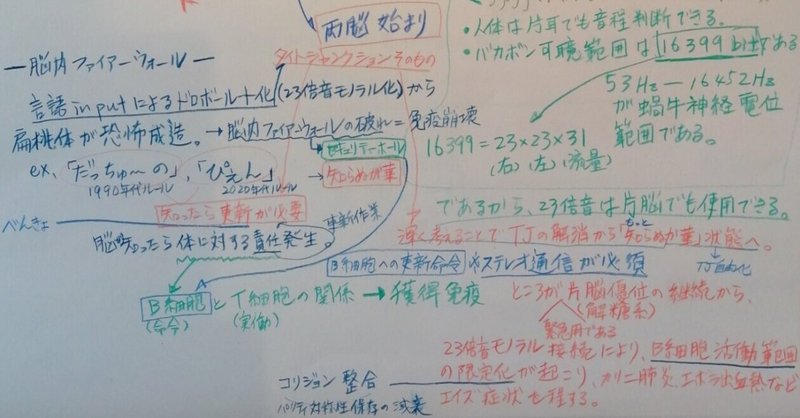 両脳始まり
タイトジャンクションそのもの
―脳内ファイアーウォール―
言語inputによるドロボールト化(23倍音モノラル化)から
扁桃体が恐怖成造。→脳内ファイアーウォールの破れ=免疫崩壊
セキュリティーホール
ex、「だっちゅ〜の」,「ぴえん」→知らぬが華
1990年代ルール 2020年代ルール
知ったら更新が必要
べんきょ
更新作業
脳が知ったら体に対する責任発生。
・人体は片耳でも音程判断できる。
・バカボン可聴範囲は16399bitである
53Hz―16452Hz
が蝸牛神経電位
範囲である。
16399=23×23×31
(右) (左) (流量)
であるから、23倍音は片脳でも使用できる。
深く考えることでTJの解消から「知らぬが華」状態へ。
もっと
TJ自由化
B細胞への更新命令やステレオ通信が必須
B細胞とT細胞の関係→獲得免疫
(命令) (実働)
ところが片脳優位の継続から、
(解糖系)
緊急用である
23倍音モノラル接続により、B細胞活動範囲
の限定化が起こり、カリニ肺炎、エボラ出血熱など
エイズ症状も理する。
コリジョン整合
パリティ対称性保存の減衰